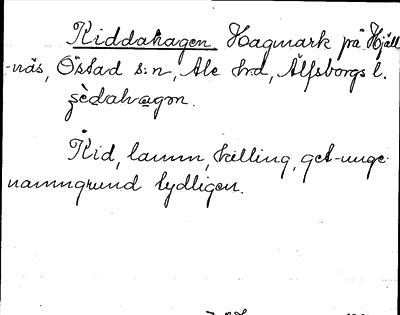 Kiddahagen. Hagmark på Hjäll
-näs, Östad s:n, Ale hrd, Älfsborgs l.
Kid, lamm, killing, get-unge
namngrund tydligen.